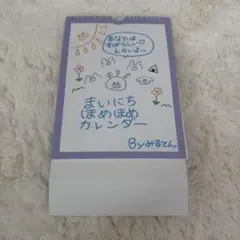 あなたは
すばらしい♡
えらいよー
まいにち
ほめほめ
カレンダー
Byみるてん